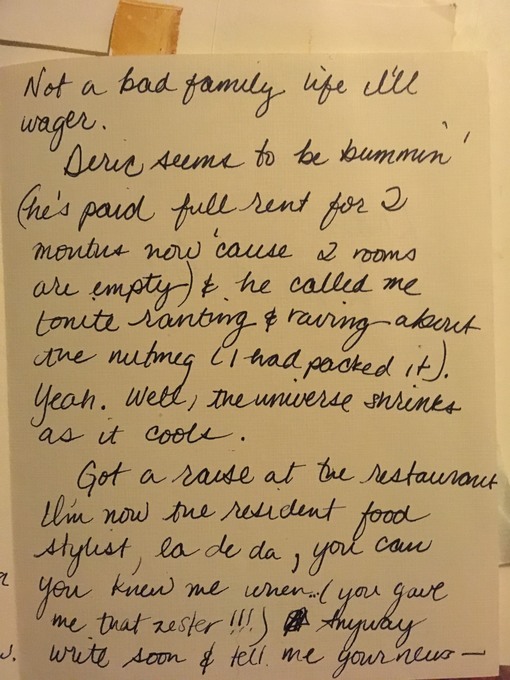 Not a bad family life I'll
wager.
Deric seems to be bummin'
(he's paid full rent for 2
months now 'cause 2 rooms
are empty) & he called me
tonite ranting & raving about
the nutmeg (I had packed it).
Yeah. Well, the universe shrinks
as it cools.
Got a raise at the restaurant
I'm now the resident food
stylist, la de da, you can
you knew me when..(you gave
me that zester!!!) Anyway
write soon & tell me your news—